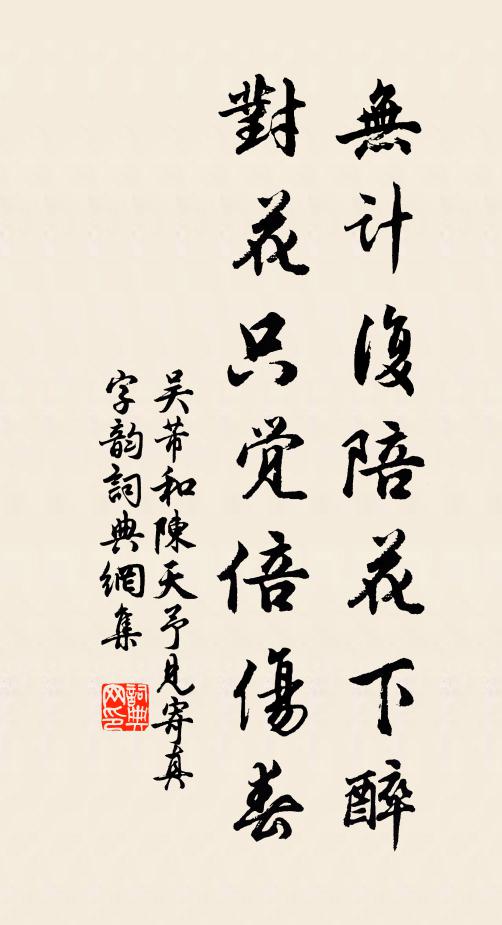 無计復陪花下醉
對花只覚倍傷春
吴芾和陳天予見寄真
字韵詞典網集
詞典
网印